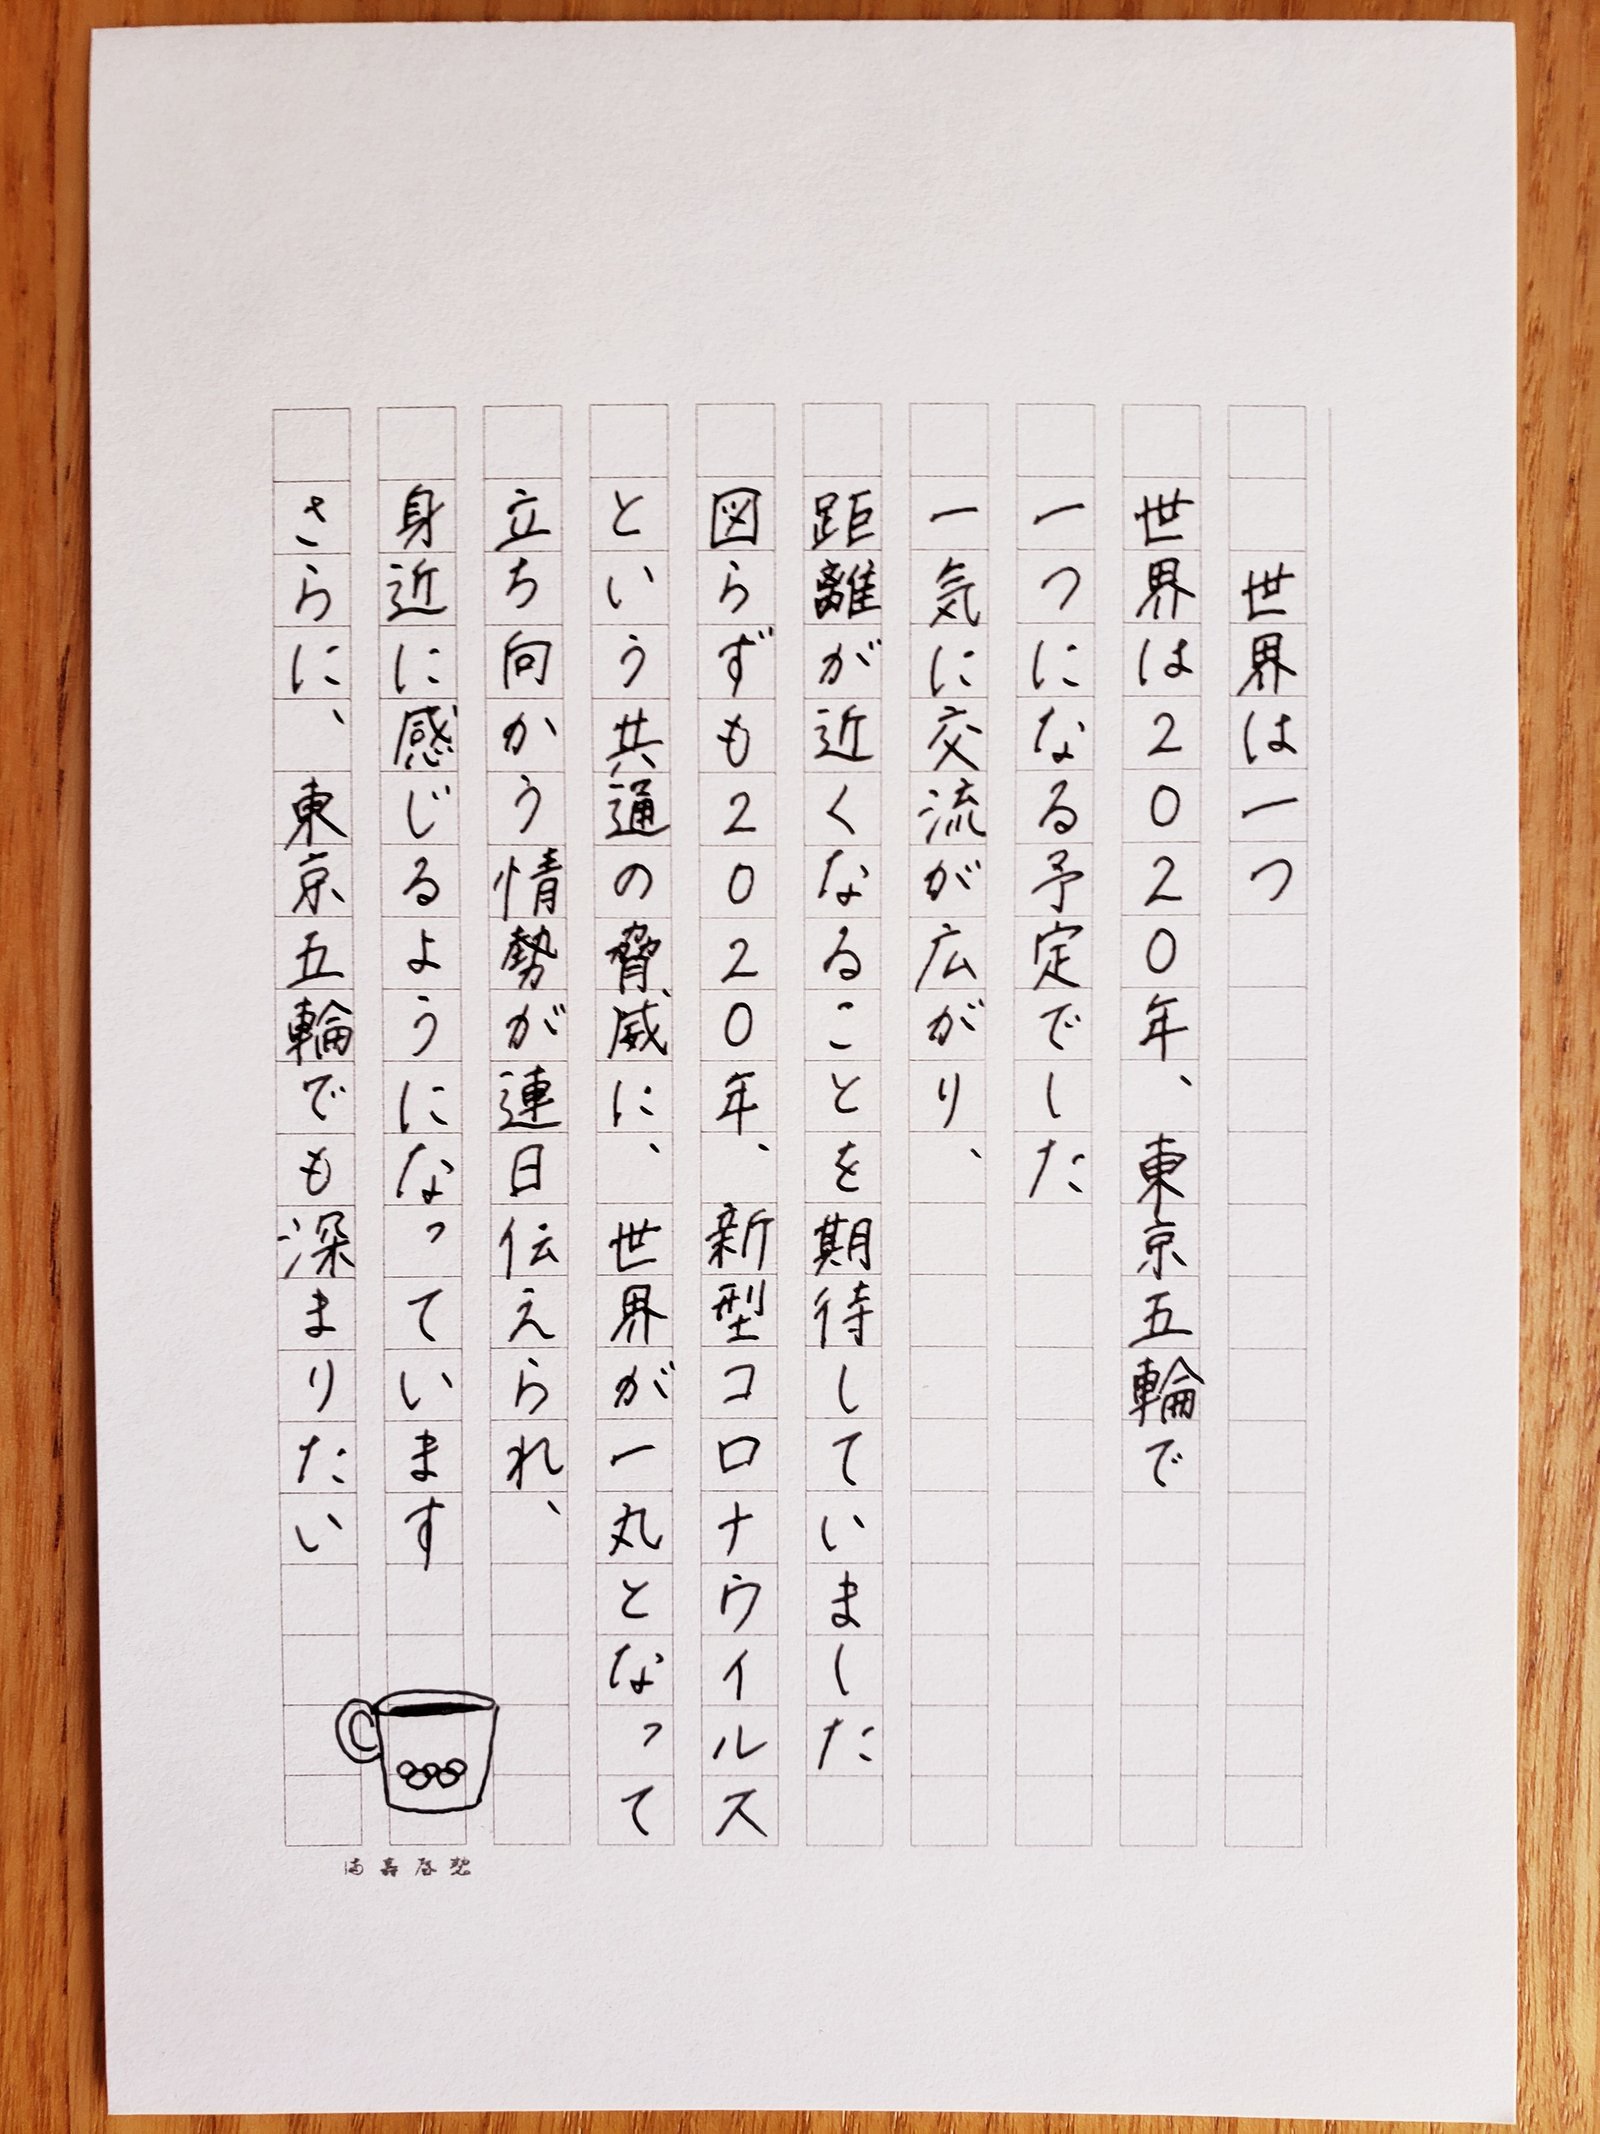 世界は一つ
世界は2020年、東京五輪で
一つになる予定でした
一気に交流が広がり、
距離が近くなることを期待していました
図らずも2020年、新型コロナウイルス
という共通の脅威に、世界が一丸となって
立ち向かう情勢が連日伝えられ、
身近に感じるようになっています
さらに、東京五輪でも深まりたい